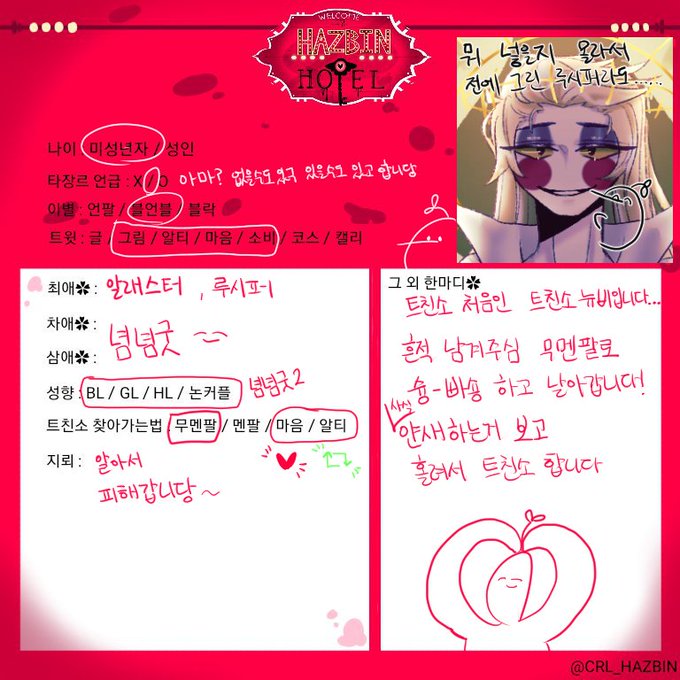 WELCOME
HAZBIN
HOTEL
뭐 넣을지 몰라서
전에 그린 루시퍼라도.....
나이 : 미성년자 / 성인
타장르 언급 : X / O 아마? 없을수도 있고 있을수도 있고 합니당
이별 : 언팔 / 블언블 / 블락
트윗 : 글 / 그림 / 알티 / 마음 / 소비 / 코스 / 캘리
최애✽ : 알래스터 , 루시퍼
차애✽ :
념념굿
삼애✽ :
성향 : BL / GL / HL / 논커플 념념굿2
트친소 찾아가는법 : 무멘팔 / 멘팔 / 마음 / 알티
지뢰 : 알아서
피해갑니당 ~
그 외 한마디✽
트친소 처음인 트친소 뉴비입니다...
흔적 남겨주심 무멘팔로
슝-빠숑 하고 날아갑니다!
사실
얀새하는거 보고
홀려서 트친소 합니다
@CRL_HAZBIN